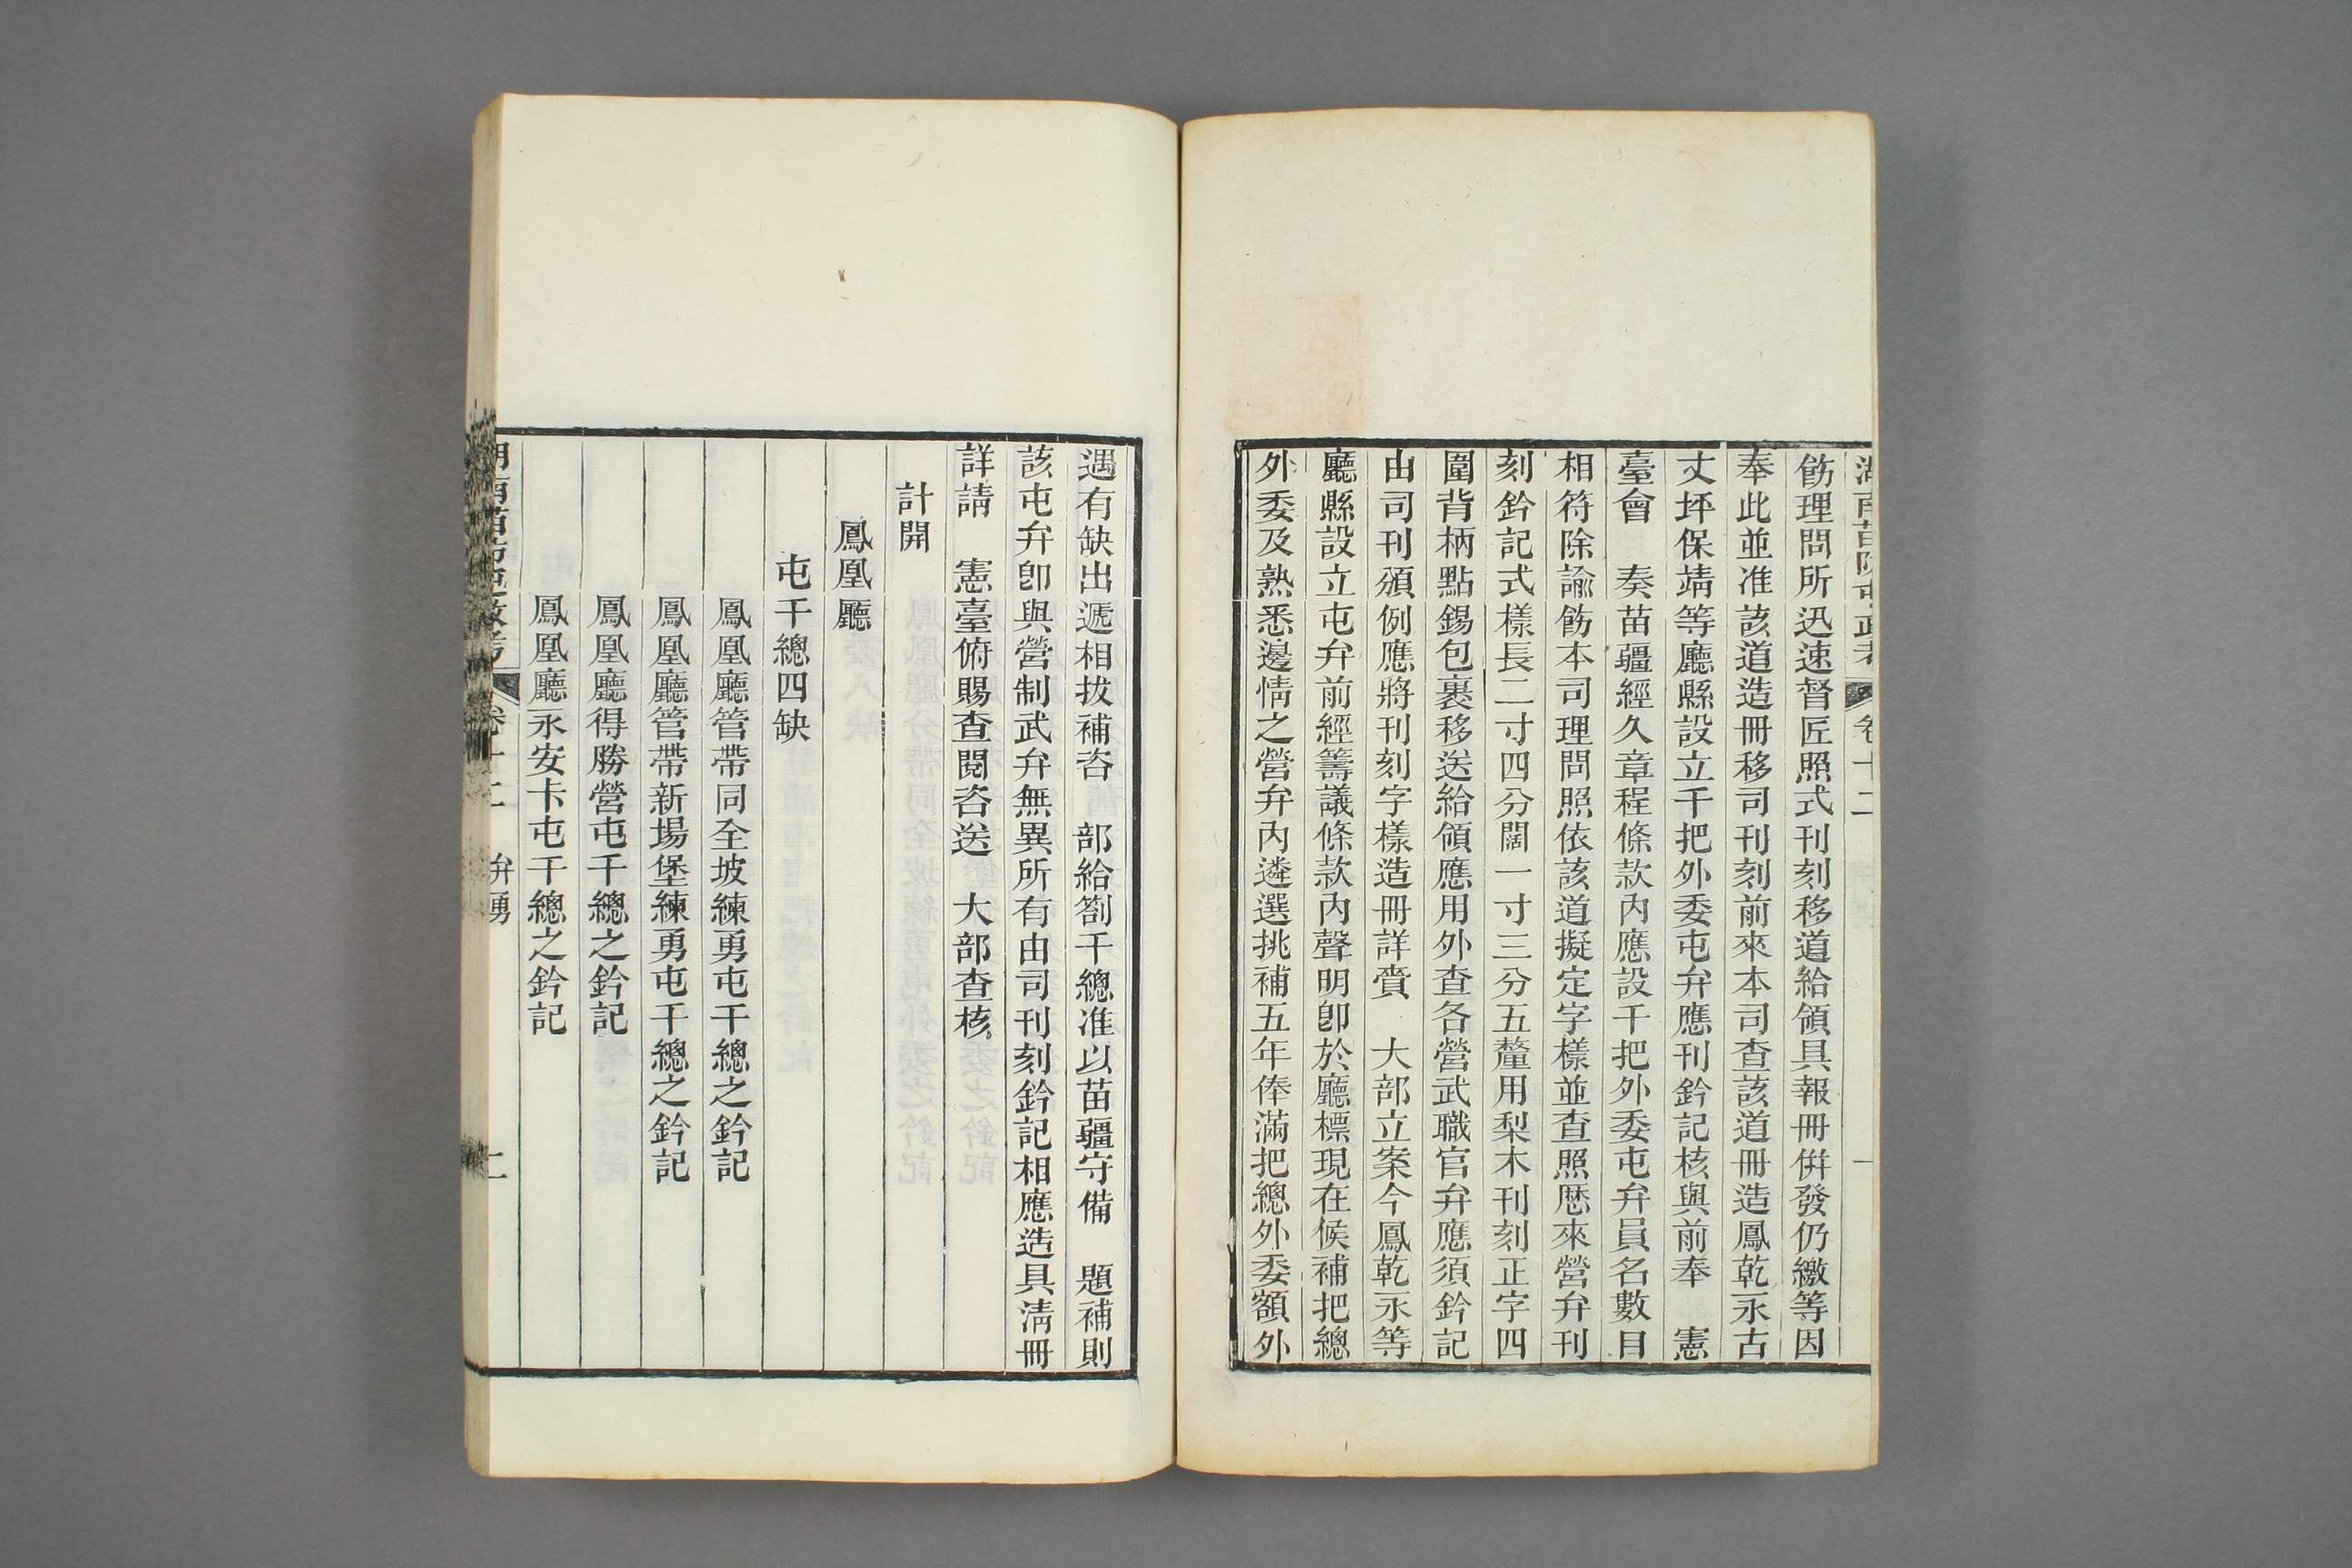 湖南苗防屯政考 卷十二 一
飭理問所迅速督匠照式刊刻移道給領具報冊併發仍繳等因
奉此並准該道造冊移司刊刻前來本司查該道冊造鳳乾永古
丈坪保靖等廳縣設立千把外委屯弁應刊鈐記核與前奉 憲
臺會 奏苗疆經久章程條款內應設千把外委屯弁員名數目
相符除諭飭本司理問照依該道擬定字樣並查照歷來營弁刊
刻鈐記式樣長二寸四分闊一寸三分五釐用梨木刊刻正字四
圍背柄點錫包裹移送給領應用外查各營武職官弁應須鈐記
由司刊頒例應將刊刻字樣造冊詳賫 大部立案今鳳乾永等
廳縣設立屯弁前經籌議條款內聲明卽於廳標現在候補把總
外委及熟悉邊情之營弁內遴選挑補五年俸滿把總外委額外
遇有缺出遞相拔補咨 部給劄千總准以苗疆守備 題補則
該屯弁卽與營制武弁無異所有由司刊刻鈐記相應造具清冊
詳請 憲臺俯賜查閱咨送 大部查核
計開
鳳凰廳
屯千總四缺
鳳凰廳管帶同全坡練勇屯千總之鈐記
鳳凰廳管帶新場堡練勇屯千總之鈐記
鳳凰廳得勝營屯千總之鈐記
鳳凰廳永安卡屯千總之鈐記
湖南苗防屯政考 卷十二 弁勇 二